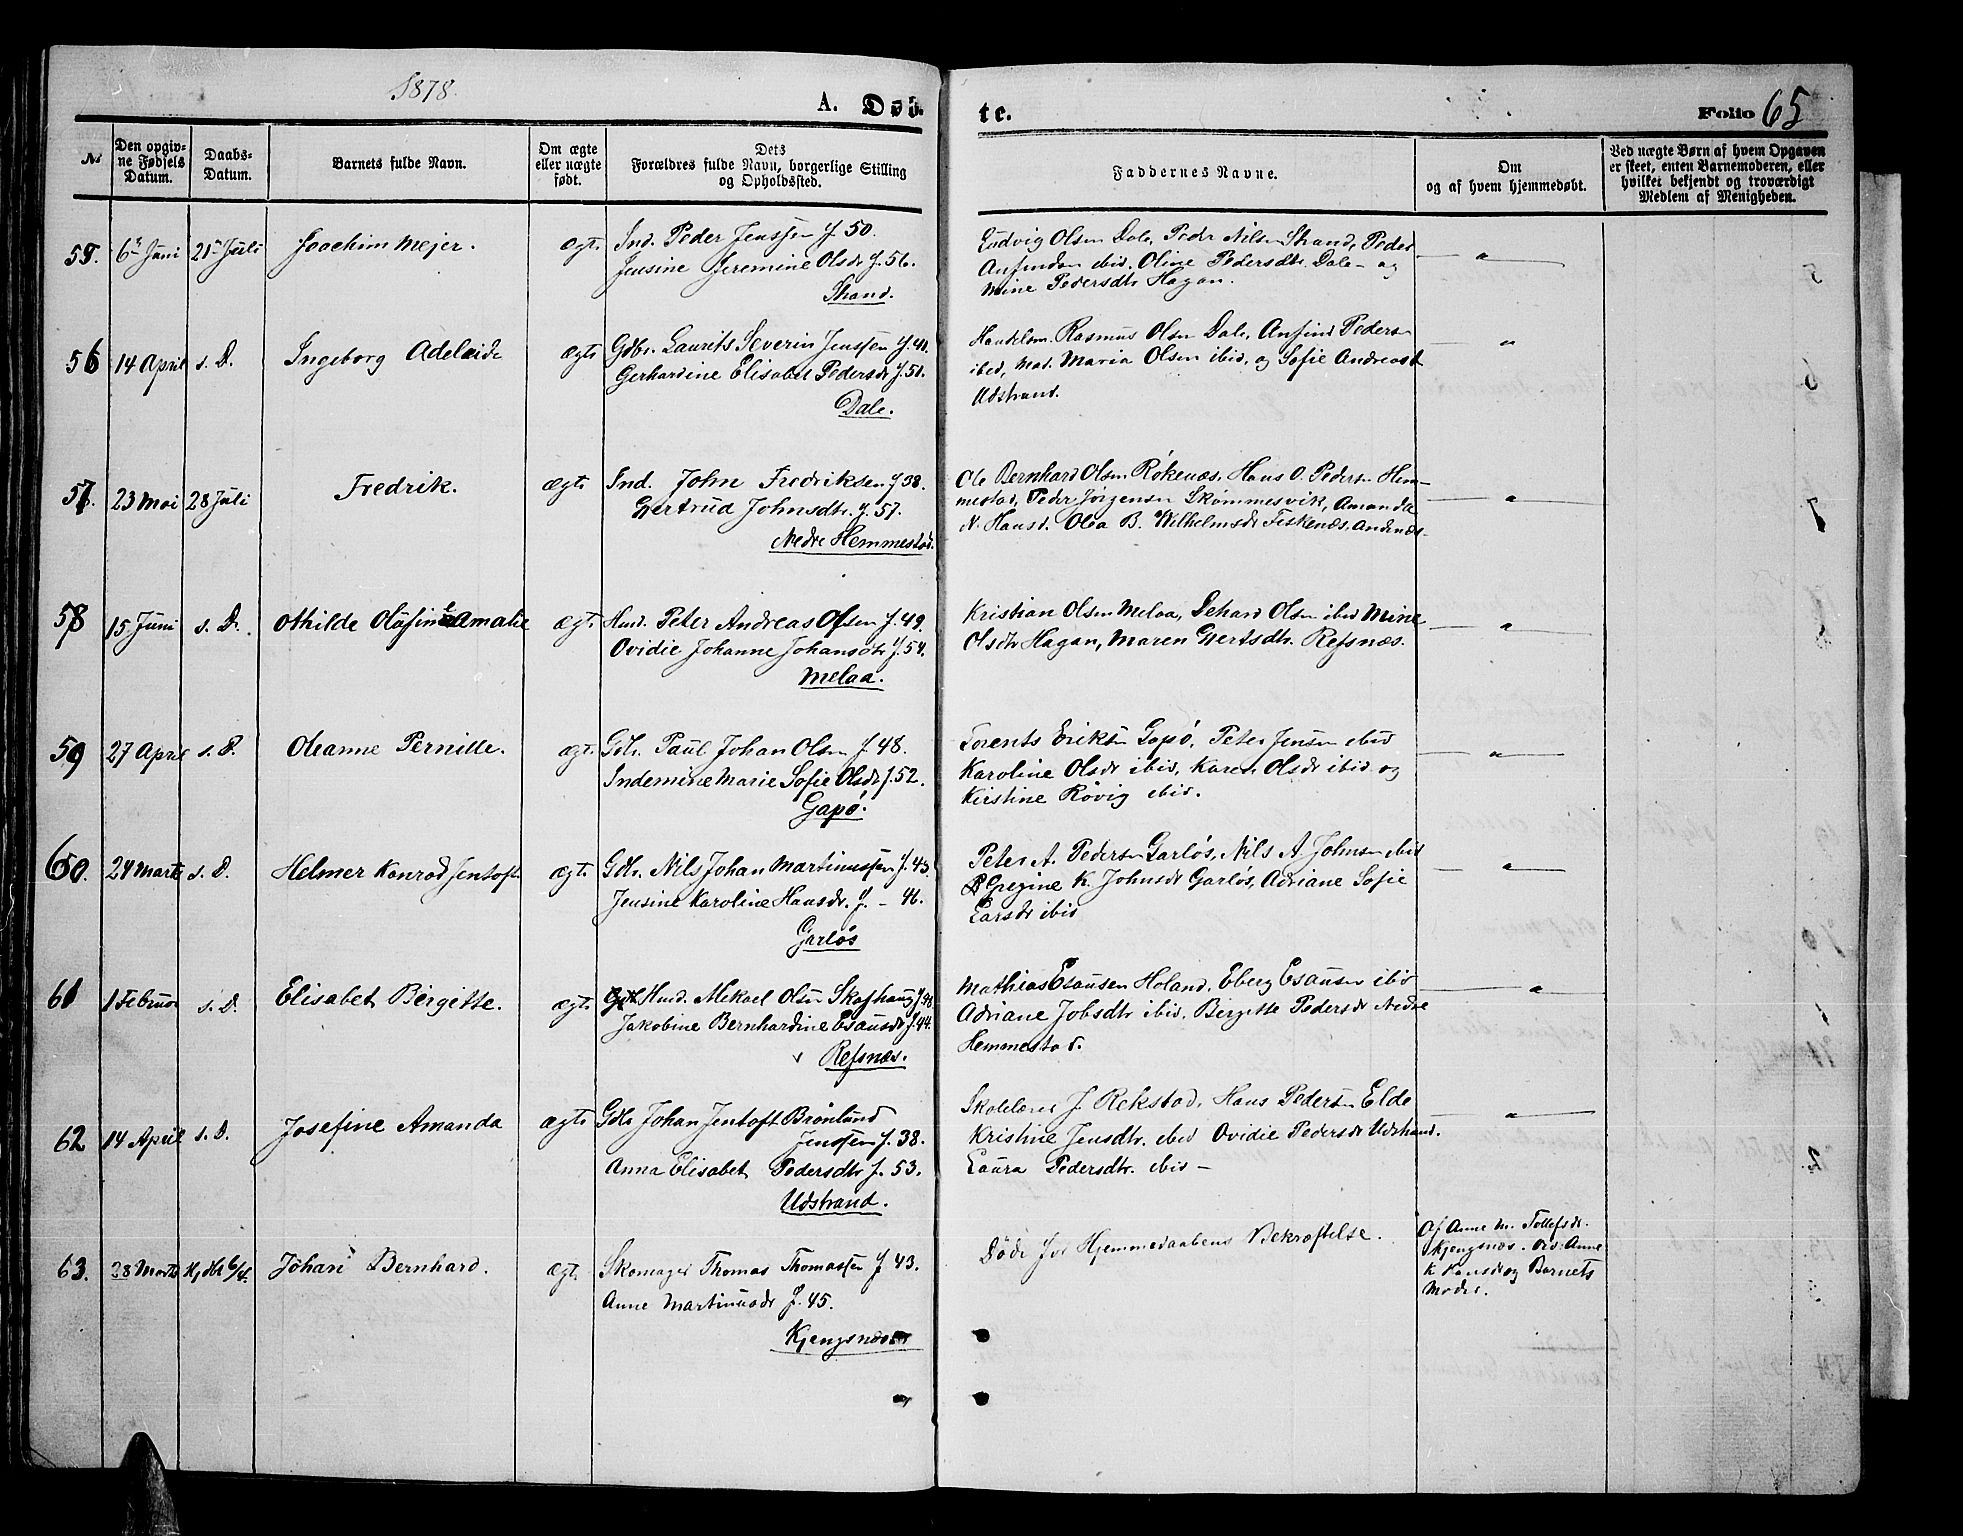 1878.
A. Døb-
te.
Folio 65
No
Den opgiv-
ne Fødsels
Datum.
Daabs-
Datum.
Barnets fulde Navn.
Om ægte
eller uægte
født.
Dets
Forældres fulde Navn, borgerlige Stilling
og Opholdssted.
Faddernes Navne.
Om
og af hvem hjemmedøbt.
Ved uægte Børn af hvem Opgaven
er skeet, enten Barnemoderen, eller
hvilket bekjendt og troværdigt
Medlem af Menigheden.
55. 6 Juni 21 Juli Joachim Mejer. ægt. Ind. Peder Jenssen f. 50.
Jensine Jeremine Olsdr f. 56.
Strand.
Ludvig Olsen Dale, Peder Nilsen Strand, Peder
Anfindsen ibid. Oline Pedersdtr. Dale - og
Mine Pedersdtr Hagan.
56 14 April s. D. Ingeborg Adelaide ægt. Gdbr. Laurits Severin Jenssen f. 41.
Gerhardine Elisabet Pedersdr f. 51.
Dale.
Handelsm. Rasmus Olsen Dale, Anfind Pedersen
ibid, Mad. Maria Olsen ibid, og Sofie Andreasd.
Udstrand.
57. 23 Mai 28 Juli Fredrik. ægt. Ind. John Fredriksen f 38.
Gertrud Johnsdtr. f. 57.
Nedre Hemmestad.
Ole Bernhard Olsen Røkenæs, Hans O. Pedersen Hem-
mestad, Peder Jørgensen Skømmesvik, Amanda
N. Hansd. Olea B. Wilhelmsdr Fiskenæs, Andenæs.
58 15 Juni s. D. Othilde Olufine Amalie ægt. Hmd. Peter Andreas Olsen f. 49.
Ovidie Johanne Johansdtr f. 54.
Melaa.
Kristian Olsen Melaa, Gehard Olsen ibid Mine
Olsdtr Hagan, Maren Gjertsdtr. Refsnæs.
59 27 April s. D. Oleanne Pernille. ægt. Gdbr. Paul Johan Olsen f. 48.
Indemine Marie Sofie Olsdr f. 52.
Gapø.
Lorents Eriksen Gapø, Peter Jensen ibid
Karoline Olsdr ibid, Karen Olsdr ibid og
Kirstine Røvig ibid.
60. 24 Marts s. D. Helmer Konrad Jentoft ægt. Gdbr. Nils Johan Martinussen f. 43.
Jensine Karoline Hansdr. f. - 46.
Garløs
Peter A. Pedersen Garløs, Nils A. Johnsen ibid
Gregine K. Johnsdr Garløs, Adriane Sofie
Larsdr ibid
61 1 Februar s. D. Elisabet Birgitte. ægt. Hmd. Mikael Olsen Skafhaug f. 48
Jakobine Bernhardine Esausdr f. 44.
Refsnæs.
Mathias Esausen Holand, Eberg Esausen ibid
Adriane Jobsdtr ibid. Birgitte Pedersdr Nedre
Hemmestad.
62 14 April s. D. Josefine Amanda ægt. Gdbr Johan Jentoft Brønlund
Jenssen f. 38.
Anna Elisabet Pedersdtr f. 53.
Udstrand.
Skolelærer J. Rekstad, Hans Pedersen Elde
Kristine Jensdtr. ibid Ovidie Pedersdr Udstrand.
Laura Pedersdtr. ibid -
63. 28 Marts Hjdbt 6/4. Johan Bernhard. ægt. Skomager Thomas Thomassen f 43.
Anne Martinusdr f. 45.
Kjengsnæs
Døde før Hjemmedaabens Bekræftelse.
Af Anne M. Tollefsdr.
Kjengsnæs. Vid: Anne
K Hansdr og Barnets
Moder.